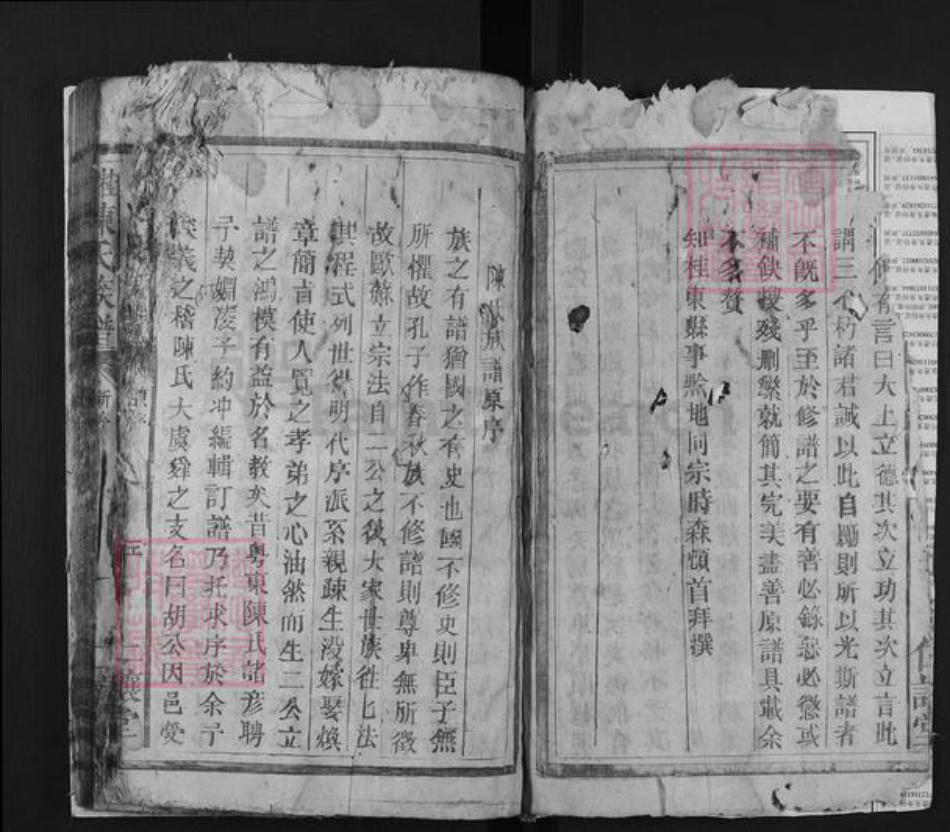 脩有言曰大上立德其次立功其次立言此
謂三不朽諸君誠以此自勵則所以光斯譜者
不旣多乎至於修譜之要有善必錄惡必懲或
補缺搜殘删繁就簡其完美盡善原譜具載余
不多贅
知桂東縣事黔地同宗時森頓首拜撰
陳氏族譜原序
族之有譜猶國之有史也國不修史則臣子無
所懼故孔子作春秋族不修譜則尊卑無所徵
故歐蘇立宗法自二公之後大家世族徃匕法
其程式列世得明代序派系親疎生没嫁娶煥
章簡盲使人覽之孝弟之心油然而生二公立
譜之鴻模有益於名教矣昔粤東陳氏諸彦聘
子契嫺凌子約冲編輯訂譜乃托求序於余予
義之稽陳氏大虞舜之支名曰胡公因邑受
陳氏族譜